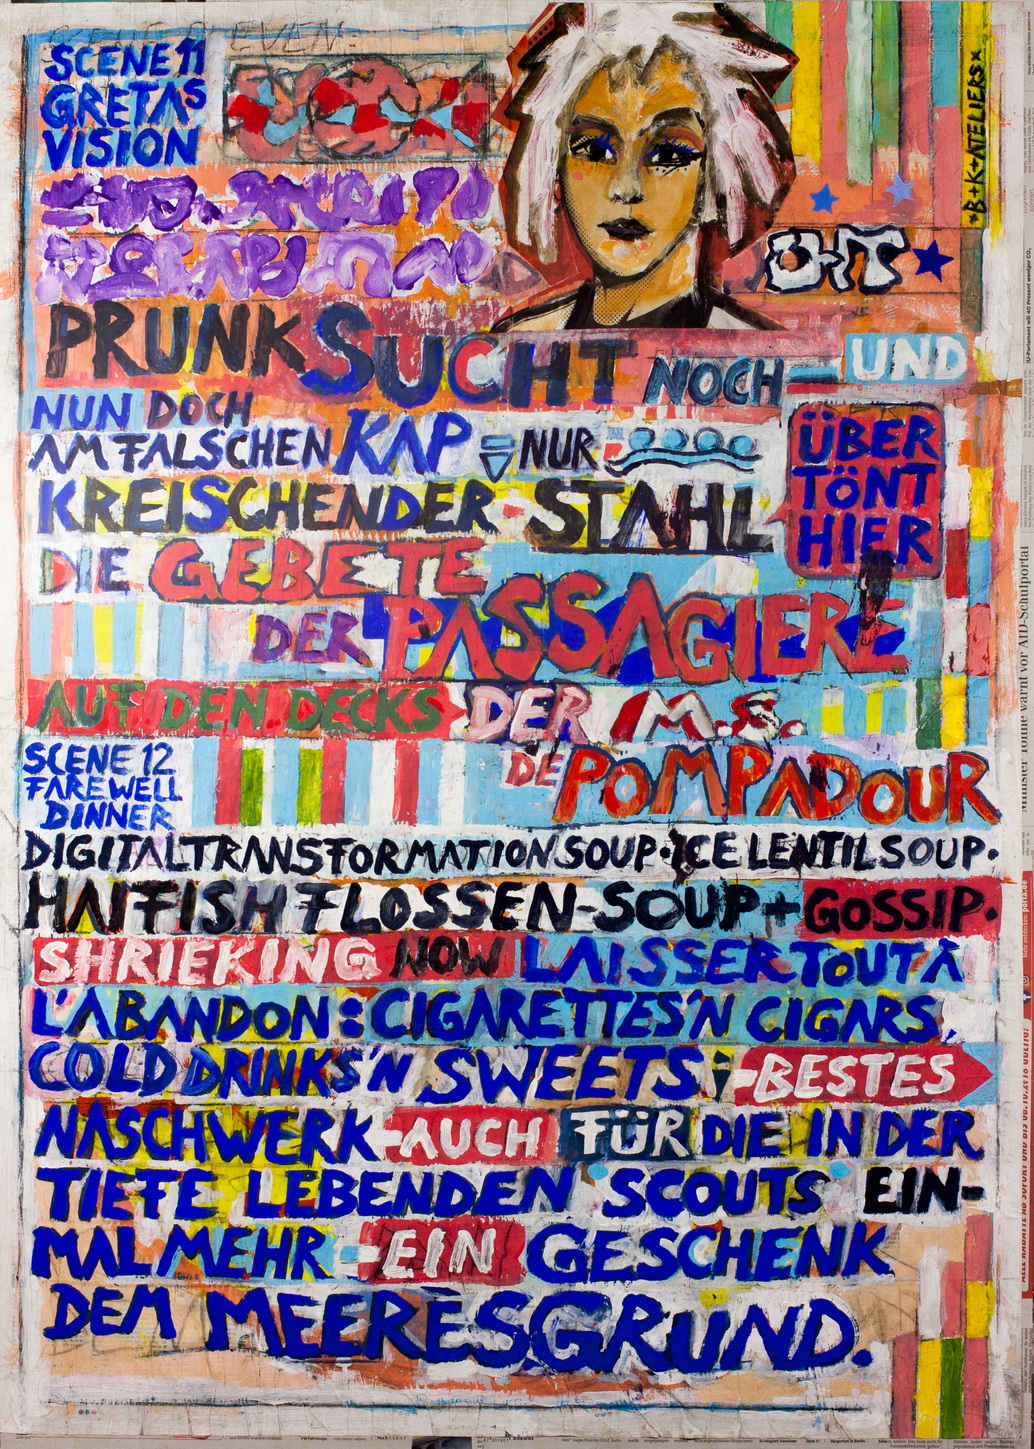 SCENE 11
GRETAS
VISION
*B+K+ATELIERS*
PRUNKSUCHT NOCH UND
NUN DOCH
AM FALSCHEN KAP = NUR
KREISCHENDER STAHL
ÜBER
TÖNT
HIER
DIE GEBETE
DER PASSAGIERE
AUF DEN DECKS DER M.S.
DE POMPADOUR
SCENE 12
FAREWELL
DINNER
DIGITALTRANSFORMATIONSOUP·ICE LENTIL SOUP·
HAIFISHFLOSSEN-SOUP+GOSSIP.
SHRIEKING NOW LAISSER TOUT À
L'ABANDON: CIGARETTES'N CIGARS,
COLD DRINKS'N SWEETS; BESTES
NASCHWERK-AUCH FÜR DIE IN DER
TIEFE LEBENDEN SCOUTS EIN-
MAL MEHR = EIN GESCHENK
DEM MEERESGRUND.